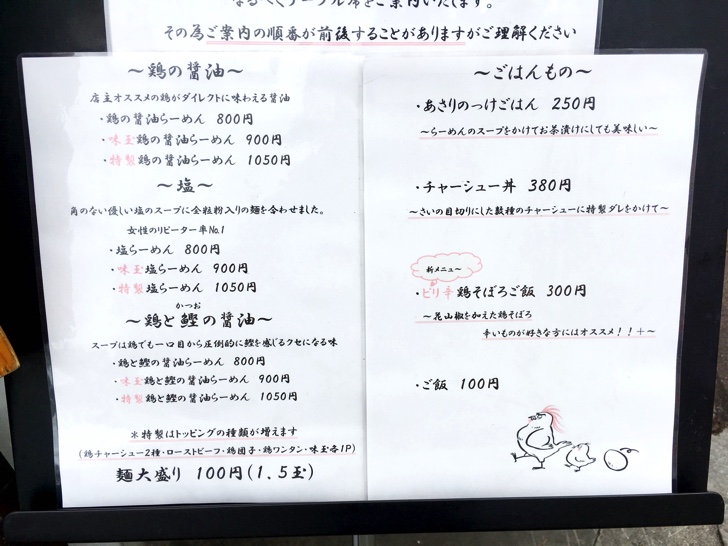 なるべくテーブル席をご案内いたします。
その為ご案内の順番が前後することがありますがご理解ください
～鶏の醤油～
店主オススメの鶏がダイレクトに味わえる醤油
・鶏の醤油らーめん 800円
・味玉鶏の醤油らーめん 900円
・特製鶏の醤油らーめん 1050円
～塩～
角のない優しい塩のスープに全粒粉入りの麺を合わせました。
女性のリピーター率No.1
・塩らーめん 800円
・味玉塩らーめん 900円
・特製塩らーめん 1050円
かつお
～鶏と鰹の醤油～
スープは鶏でも一口目から圧倒的に鰹を感じるクセになる味
・鶏と鰹の醤油らーめん 800円
・味玉鶏と鰹の醤油らーめん 900円
・特製鶏と鰹の醤油らーめん 1050円
＊特製はトッピングの種類が増えます
(鶏チャーシュー2種・ローストビーフ・鶏団子・鶏ワンタン・味玉各1P)
麺大盛り 100円(1.5玉)
～ごはんもの～
・あさりのっけごはん 250円
～らーめんのスープをかけてお茶漬けにしても美味しい～
・チャーシュー丼 380円
～さいの目切りにした数種のチャーシューに特製ダレをかけて～
新メニュ～
・ピリ辛鶏そぼろご飯 300円
～花山椒を加えた鶏そぼろ
辛いものが好きな方にはオススメ！！＋～
・ご飯 100円